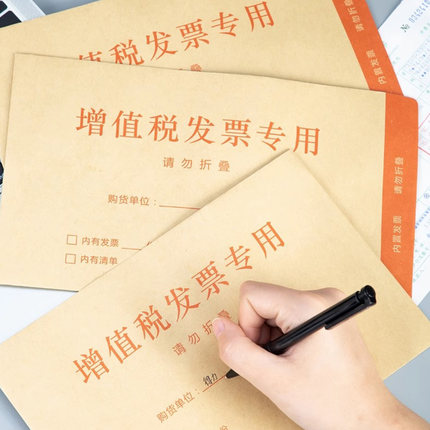 增值税发票专用
内置发票
增值税发票专用
请勿折叠
购货单位：
内有发票
内有清单
内置发票 请勿折叠
增值税发票专用
请勿折叠
购货单位：得力